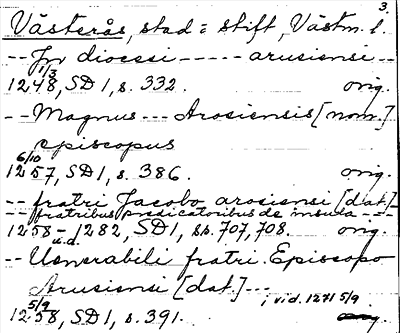 3.
Västerås, stad = stift, Västm. l.
-- In diocesi ----- arusiensi --
1/3
1248, SD 1, s. 332. orig.
-- Magnus --- Arosiensis [nom.]
episcopus
6/10
1257, SD 1, s. 386. orig.
-- fratri Jacobo arosiensi [dat.] -
-- fratribus predicatoribus de insula ----
1258 - 1282, SD 1, ss. 707, 708. orig.
u.d.
-- Venerabili fratri. Episcopo
Arusiensi [dat.] ---
; vid. 1271 5/9
5/9
1258, SD 1, s. 391. orig.